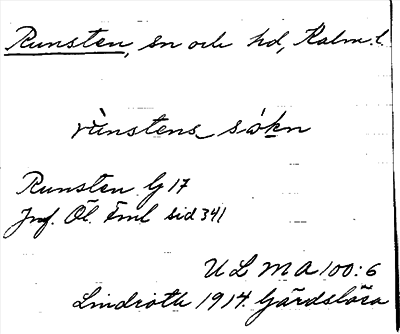 Runsten, sn och hd, Kalm. l.
rùnstens sòkn
Runsten G 17
Jmf. Öl. Eml sid 341
ULMA 100:6
Lindroth 1914. Gärdslösa